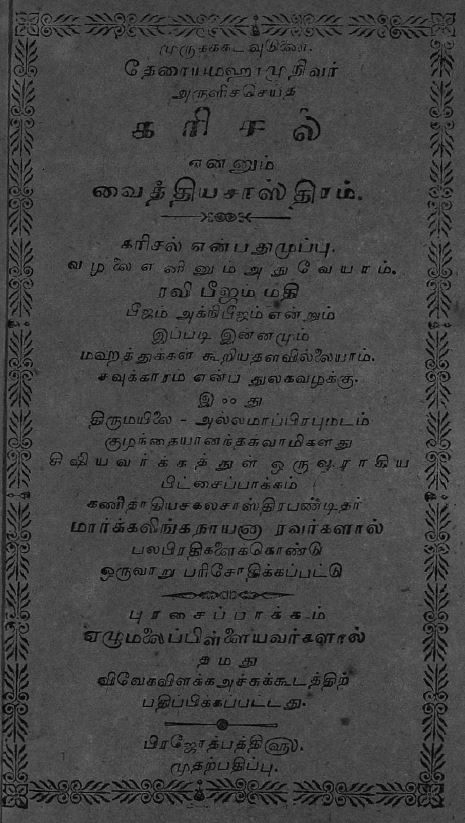 முருகக்கடவுடுணை.
தேரையமஹாமுநிவர்
அருளிச்செய்த
கரிசல்
என்னும்
வைத்தியசாஸ்திரம்.
கரிசல் என்பதுமுப்பு.
வழலை எனினும் அதுவேயாம்.
ரவி பீஜம் மதி
பீஜம் அக்நிபீஜம் என்றும்
இப்படி இன்னமும்
மஹத்துக்கள் கூறியதளவில்லையாம்.
சவுக்காரம் என்ப துலகவழக்கு.
இஃது
திருமயிலை - அல்லமாப்பிரபுமடம்
குழந்தையானந்தசுவாமிகளது
சிஷியவர்க்கத்துள் ஒருவராகிய
பீட்சைப்பாக்கம்
கணிதாதியசகலசாஸ்திரபண்டிதர்
மார்க்கலிங்கநாயனா ரவர்களால்
பலபிரதிகளைக்கொண்டு
ஒருவாறு பரிசோதிக்கப்பட்டு
புரசைப்பாக்கம்
ஏழுமலைப்பிள்ளையவர்களால்
தமது
விவேகவிளக்கஅச்சுக்கூடத்திற்
பதிப்பிக்கப்பட்டது.
பிரஜோத்பத்தி௵.
முதற்பதிப்பு.